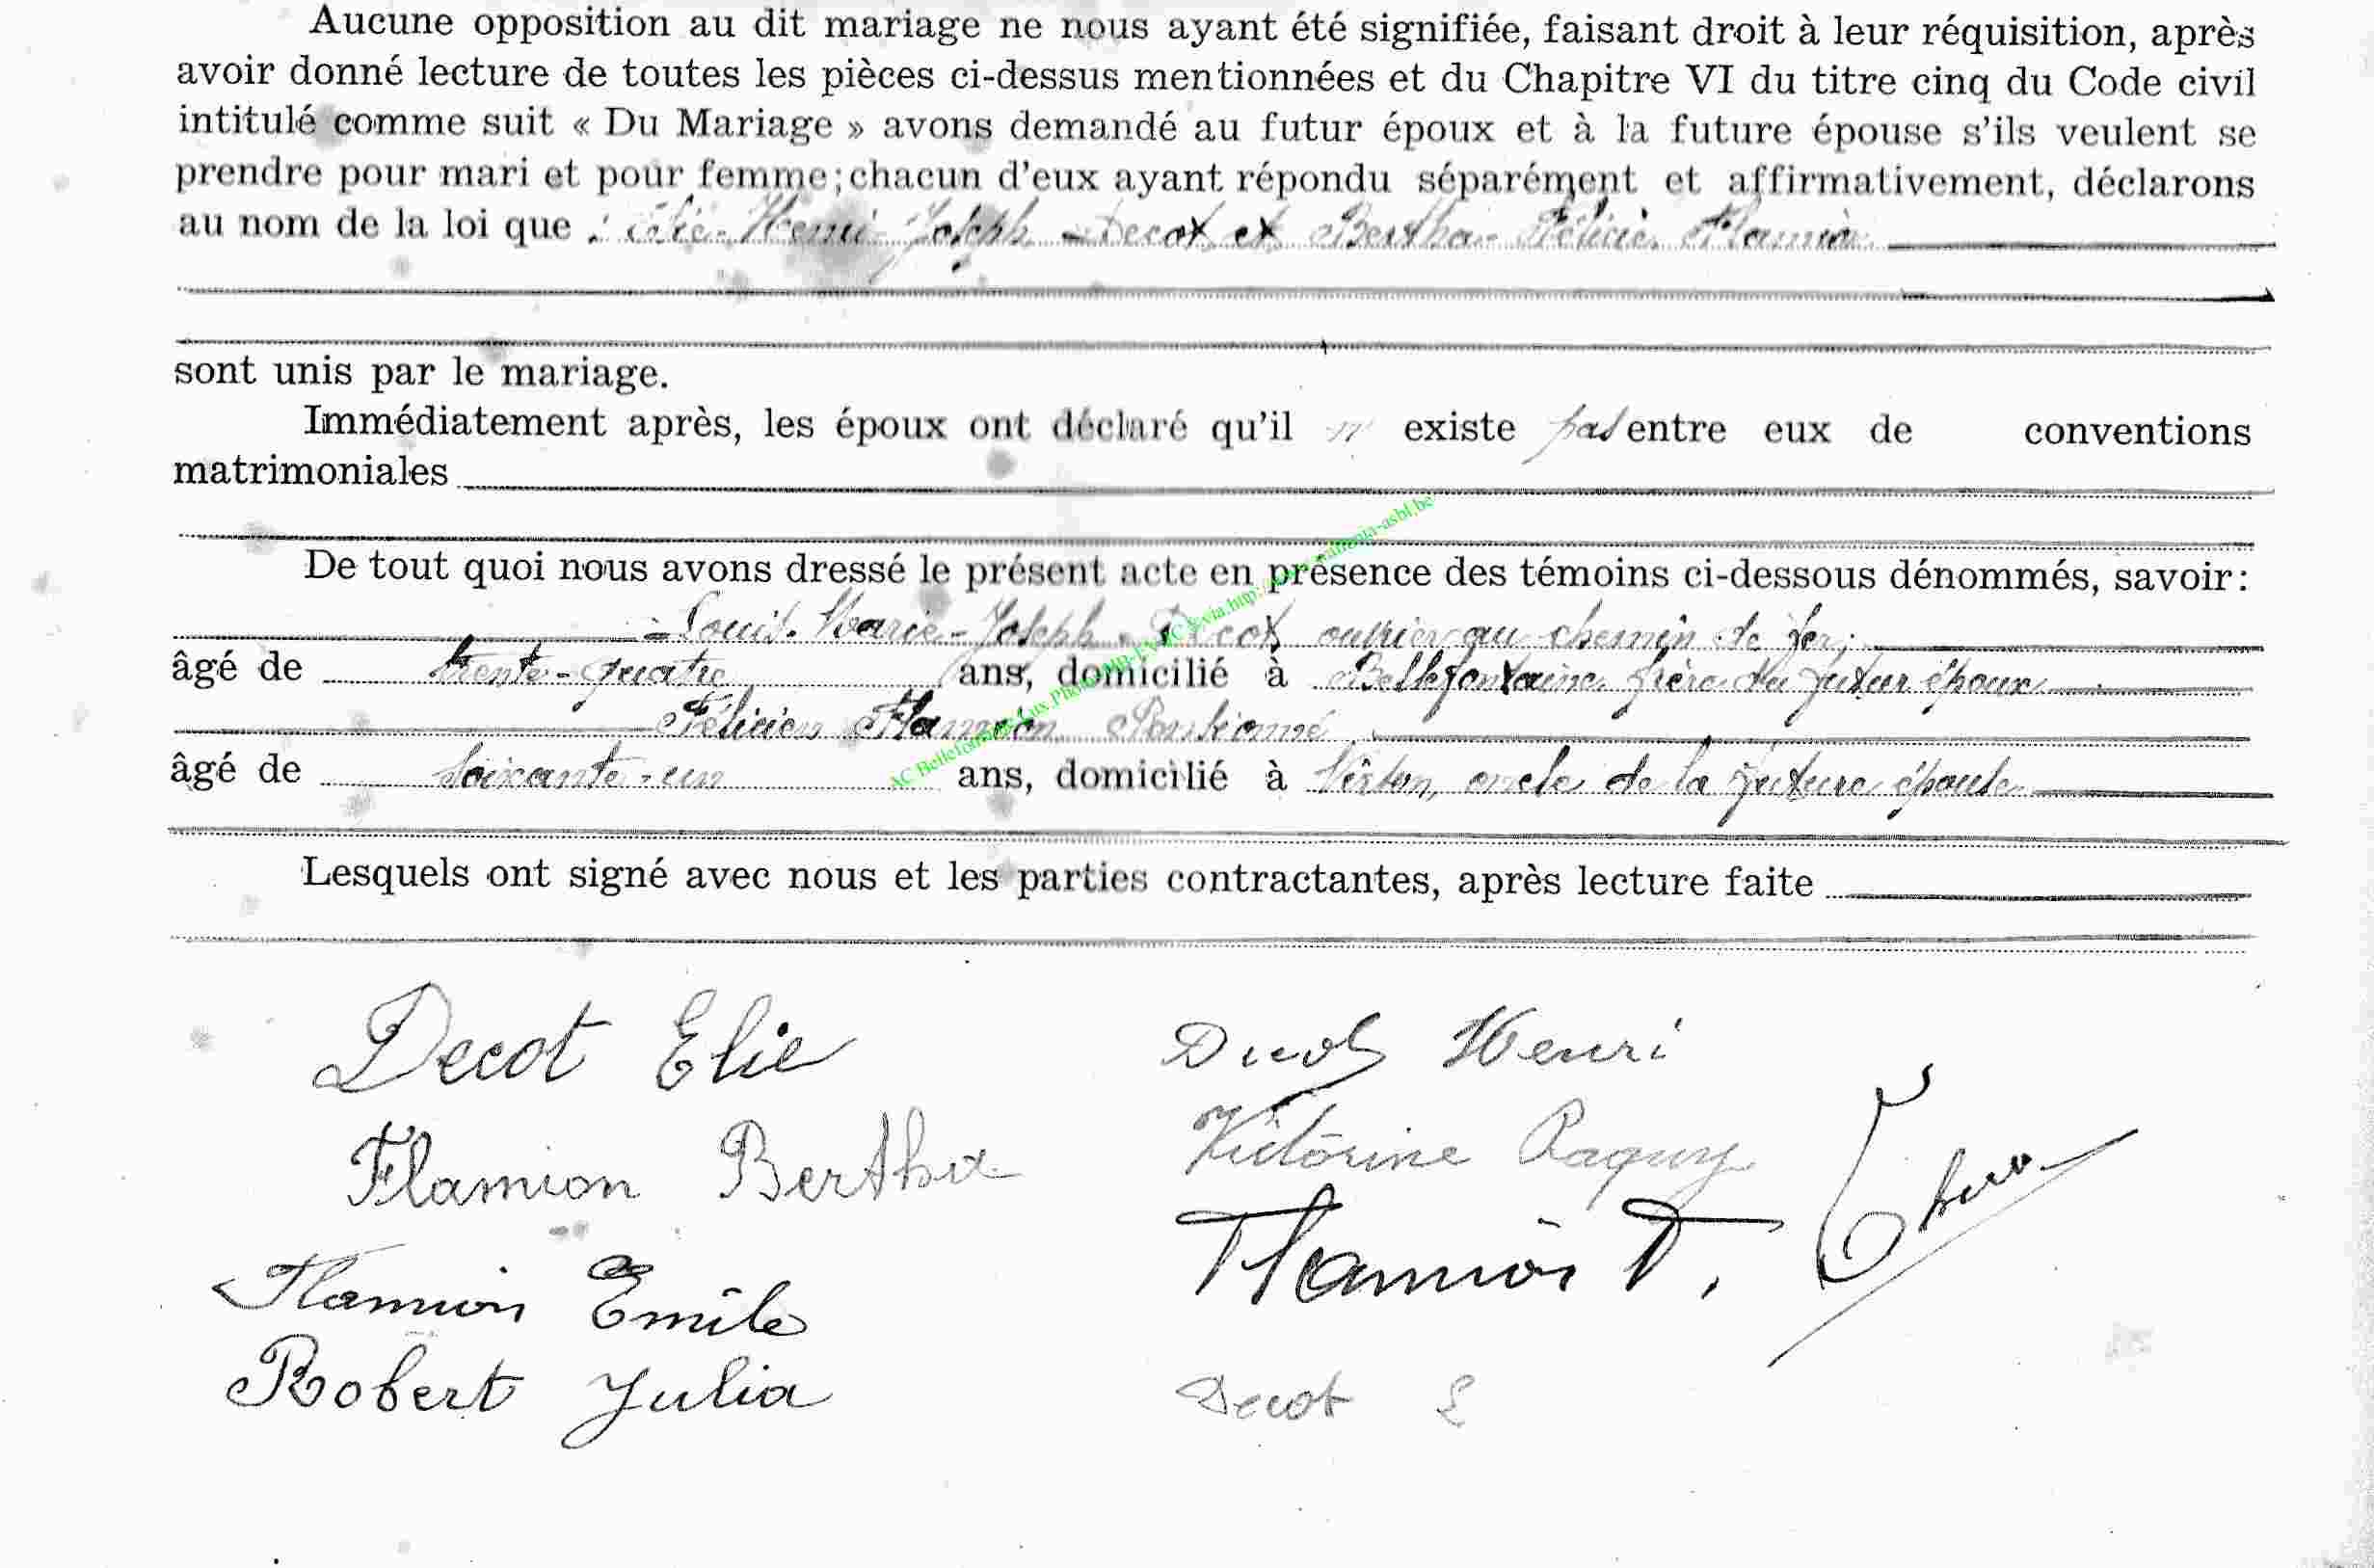 Aucune opposition au dit mariage ne nous ayant été signifiée, faisant droit à leur réquisition, après
avoir donné lecture de toutes les pièces ci-dessus mentionnées et du Chapitre VI du titre cinq du Code civil
intitulé comme suit « Du Mariage » avons demandé au futur époux et à la future épouse s'ils veulent se
prendre pour mari et pour femme; chacun d'eux ayant répondu séparément et affirmativement, déclarons
au nom de la loi que : Elie-Henri-Joseph - Decot et Bertha-Félicie Flamion
sont unis par le mariage.
Immédiatement après, les époux ont déclaré qu'il n' existe pas entre eux de conventions
matrimoniales
De tout quoi nous avons dressé le présent acte en présence des témoins ci-dessous dénommés, savoir:
- Louis-Marie-Joseph - Decot, ouvrier au chemin de fer,
âgé de trente-quatre ans, domicilié à Bellefontaine, frère du futur époux
Félicien Flamion Pensionné
âgé de soixante-un ans, domicilié à Virton, oncle de la future épouse
Lesquels ont signé avec nous et les parties contractantes, après lecture faite
Decot Elie Decot Henri
Flamion Bertha Victorine Raguy
Flamion Emile Flamion F.
Robert Julia Decot L